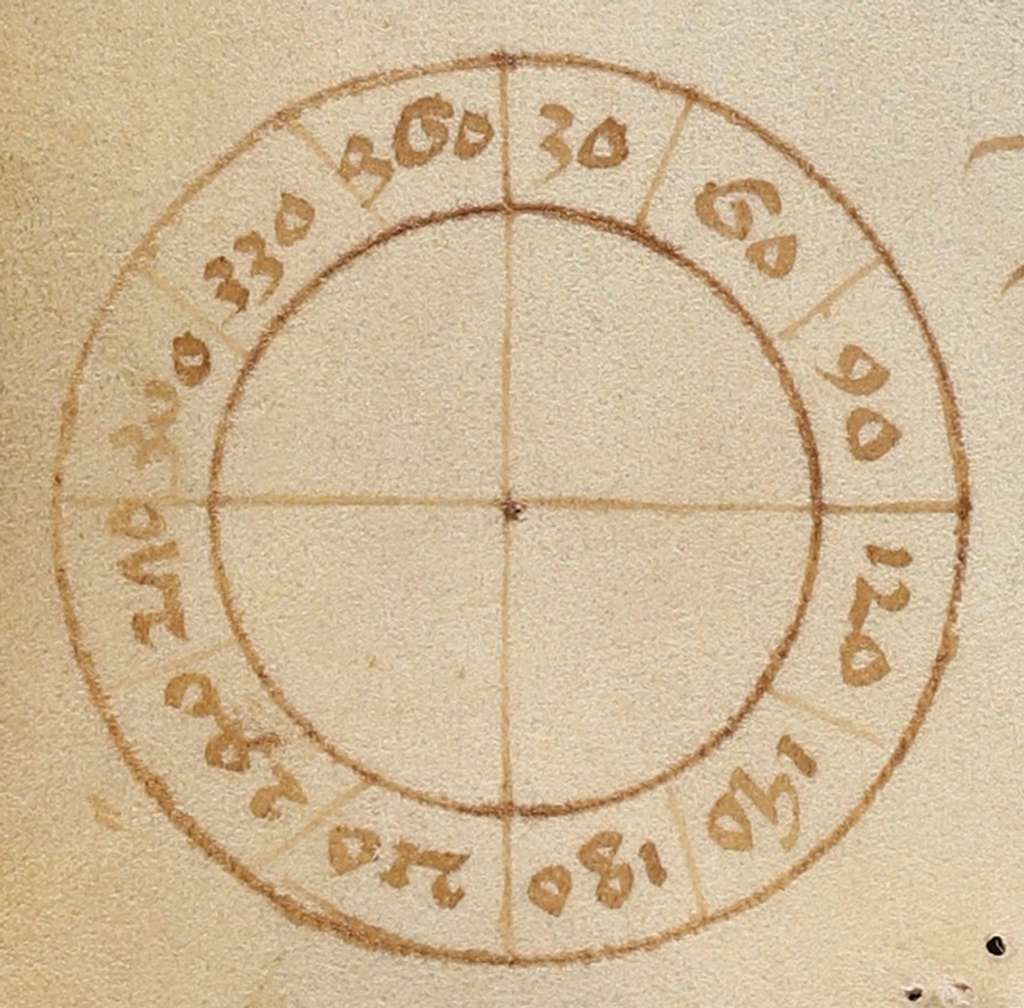 30
60
90
120
150
180
210
240
270
300
330
360